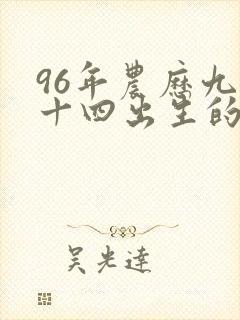 96年農曆九
十四出生的
吴光達